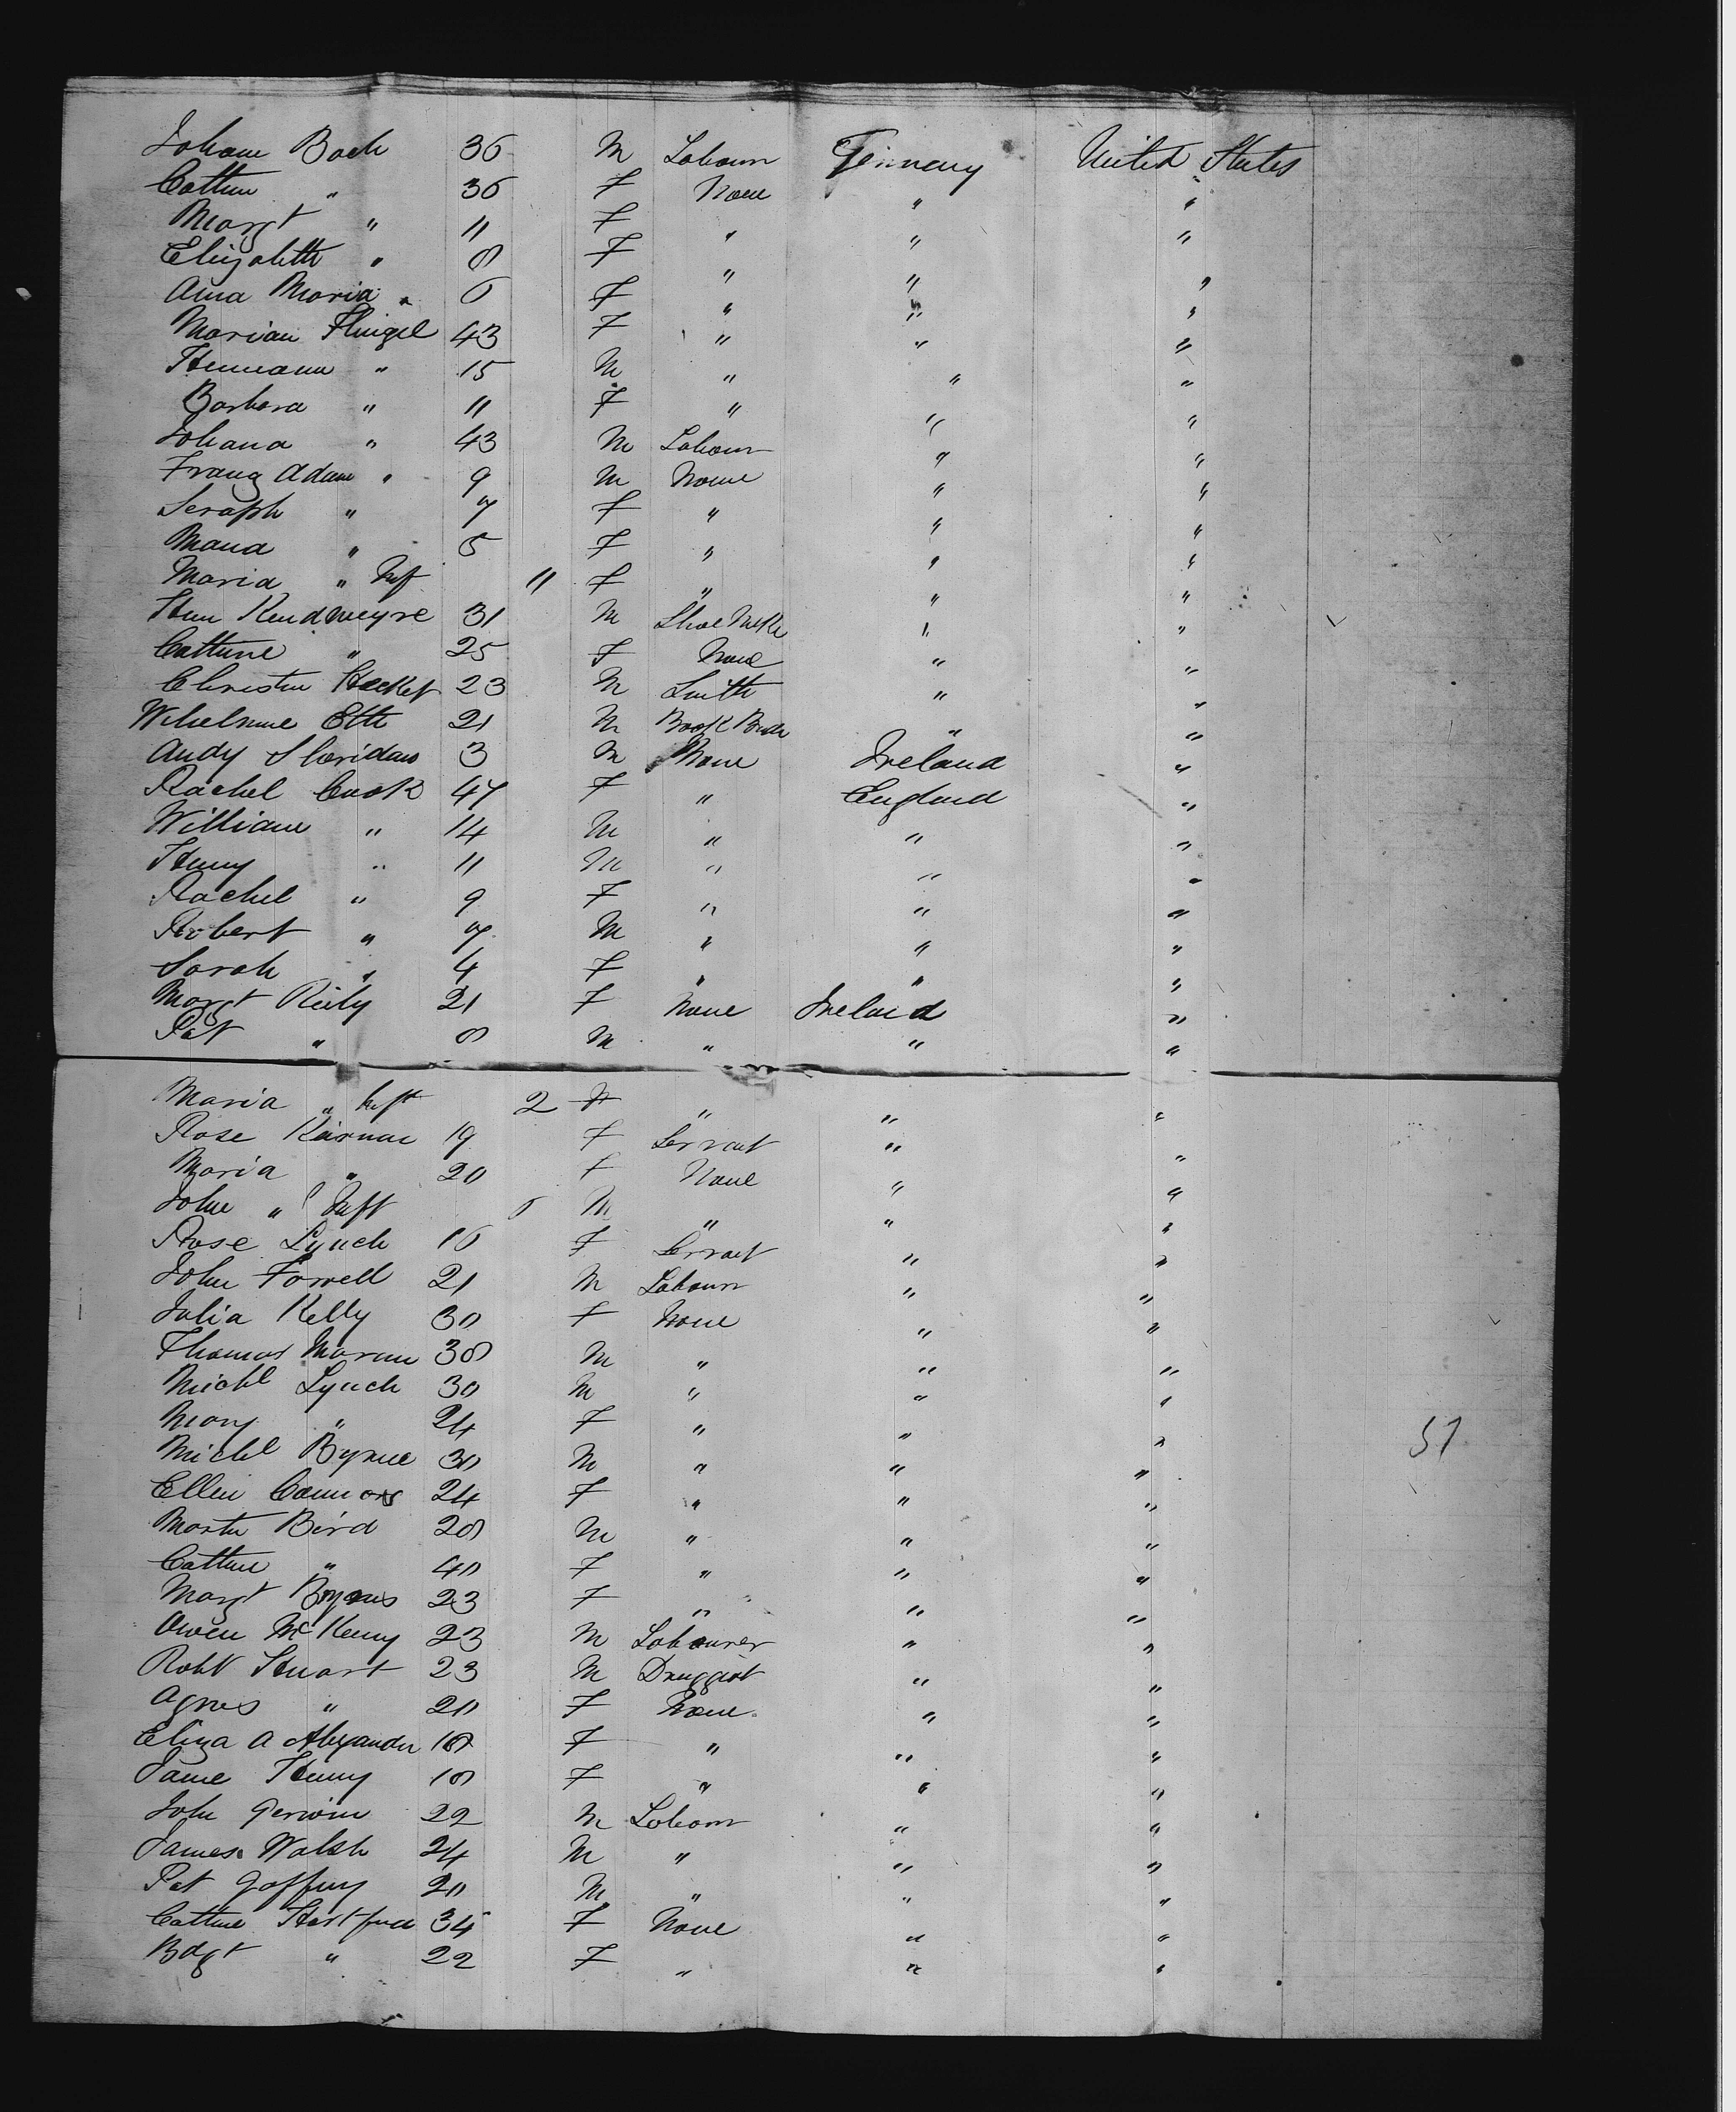 Johann Bach 36 M Labourr Germany United States
Cathne " 36 F None " "
Margt " 11 F " " "
Elizabeth " 8 F " " "
Anna Maria " 6 F " " "
Marian Fluigel 43 F " " "
Hermann " 15 M " " "
Barbara " 11 F " " "
Johana " 43 M Labourr " "
Franz Adam " 9 M None " "
Seraph " 7 F " " "
Maria " 5 F " " "
Maria " Inft 11 F " " "
Hen Kendmeyre 31 M Shoe Make " "
Cathne " 25 F None " "
Christn Hecket 23 M Smith " "
Wihelmne Eth 21 M Book Bindr " "
Andy Sheridan 3 M None Ireland "
Rachel Cook 47 F " England "
William " 14 M " " "
Henry " 11 M " " "
Rachel " 9 F " " "
Robert " 7 M " " "
Sarah " 4 F " " "
Margt Reily 21 F None Ireland "
Pat " 8 M " " "
Maria " Inft 2 F " " "
Rose Kiernan 19 F Servant " "
Maria " 20 F None " "
John " Inft 6 M " " "
Rose Lynch 16 F Servant " "
John Farrell 21 M Labourr " "
Julia Kelly 30 F None " "
Thomas Moran 38 M " " "
Michl Lynch 30 M " " "
Mary " 24 F " " "
Michl Byrne 30 M " " "
Ellen Connors 24 F " " "
Martn Bird 28 M " " "
Cathne " 40 F " " "
Margt Byrns 23 F " " "
Owen McKenny 23 M Labourer " "
Robt Stuart 23 M Druggist " "
Agnes " 20 F None " "
Eliza A Alexander 18 F " " "
Jane Henry 18 F " " "
John Gerwin 22 M Labourr " "
James Walsh 24 M " " "
Pat Gaffney 20 M " " "
Cathne Hartford 34 F None " "
Bdgt " 22 F " " "
51